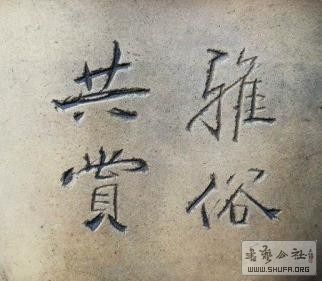 雅俗
共賞
書藝公社
WWW.SHUFA.ORG